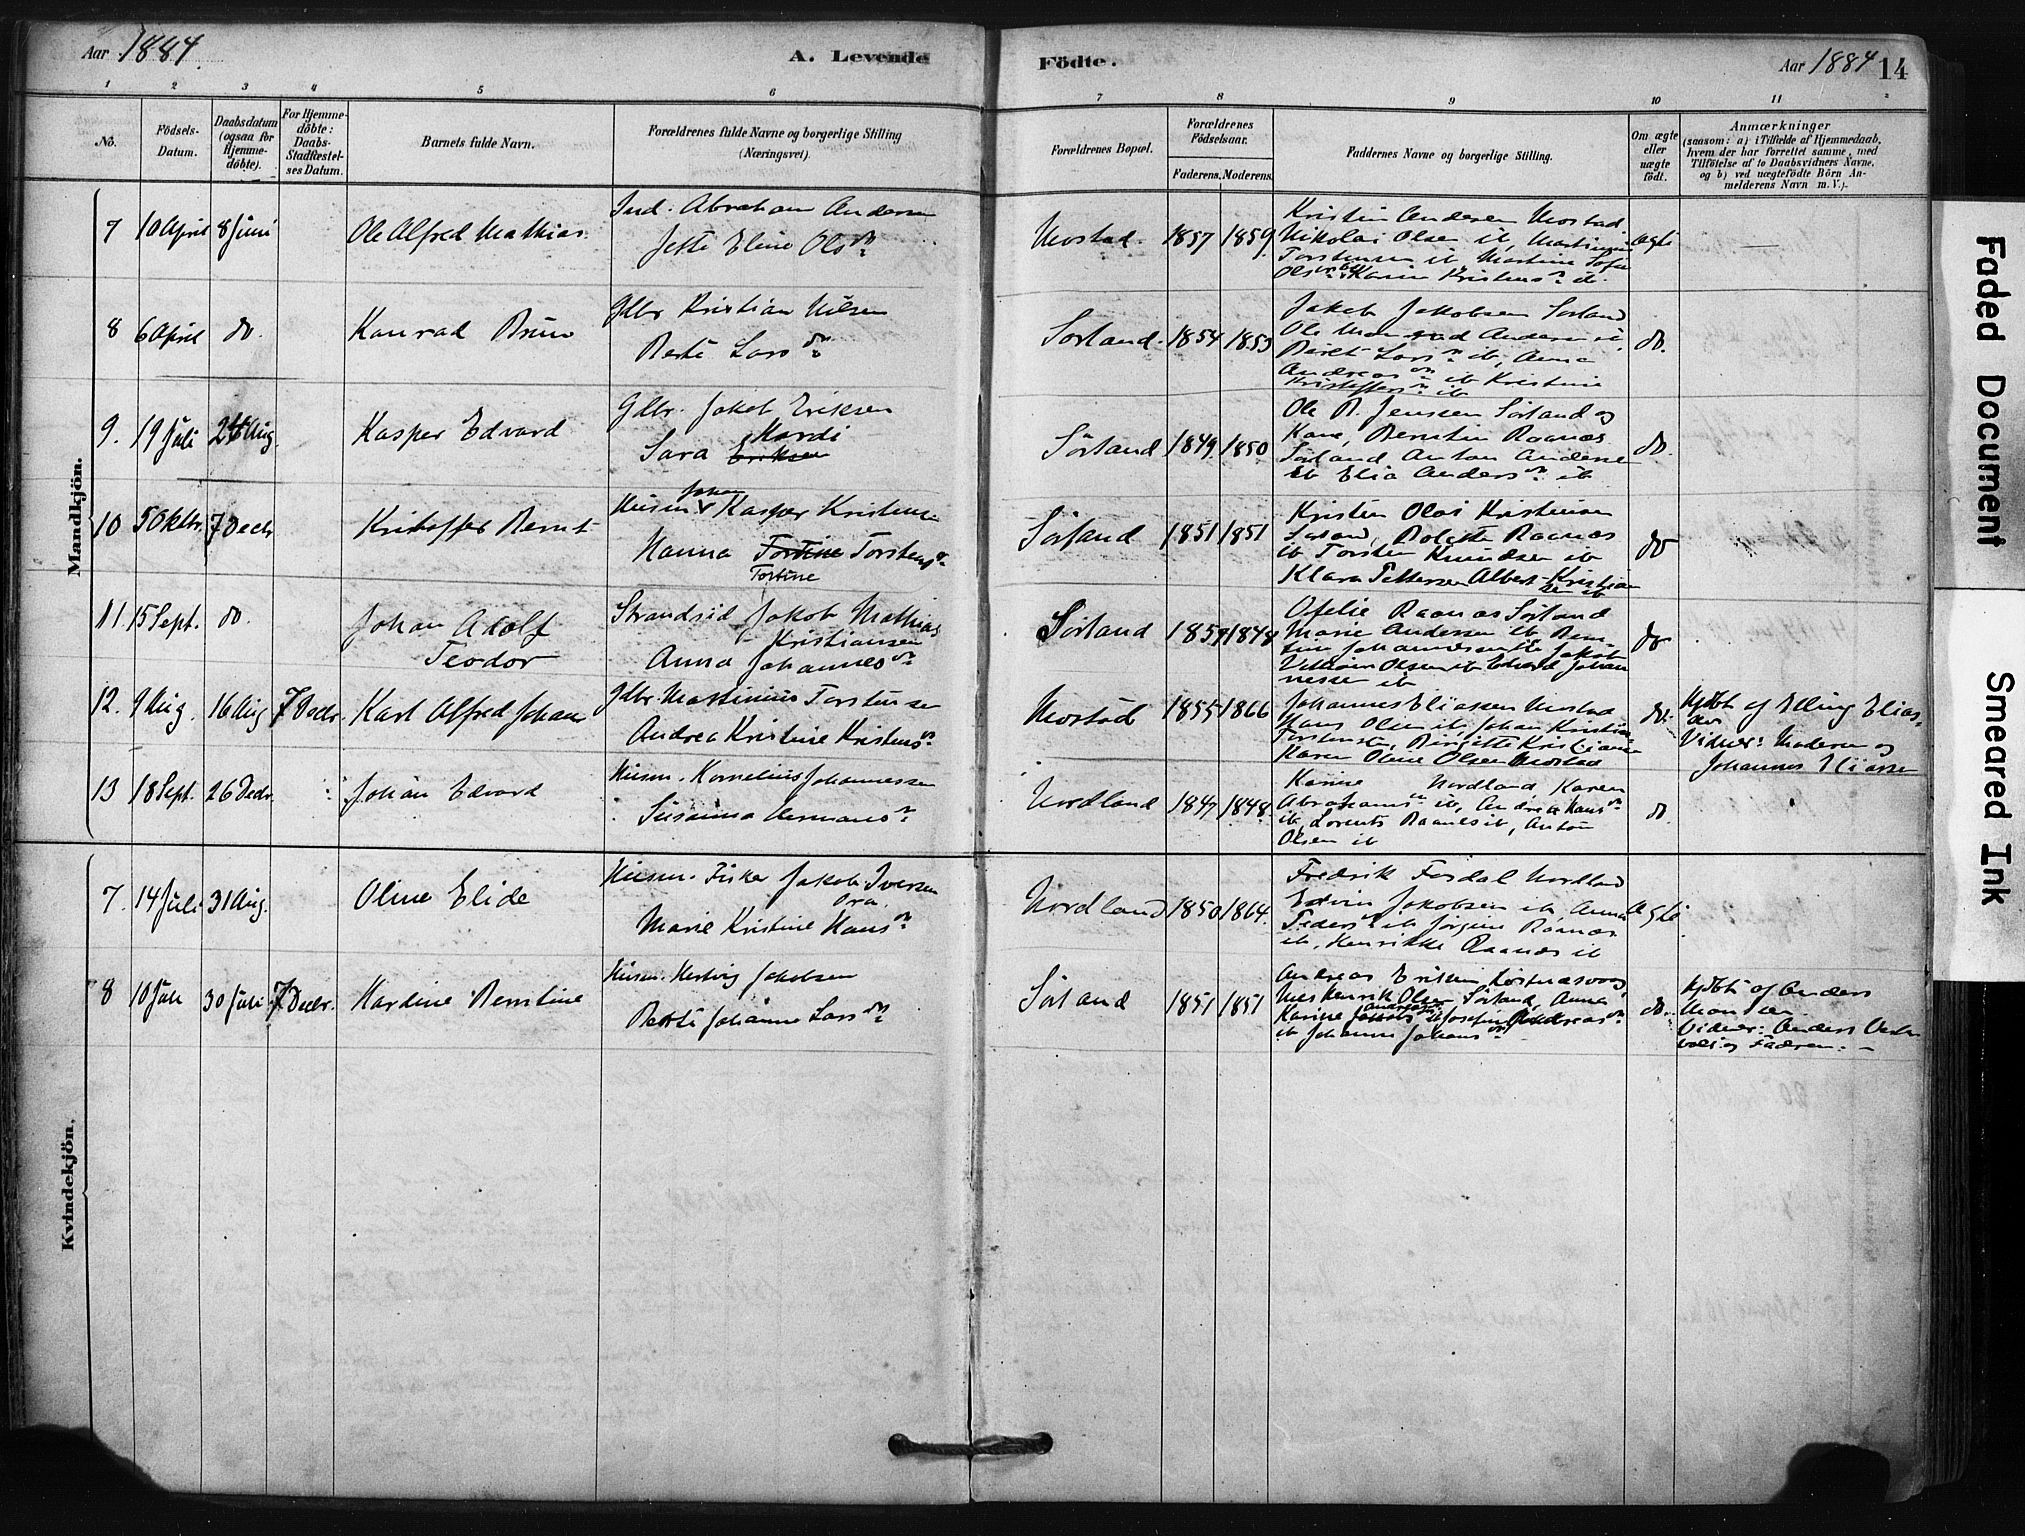 Aar 1884. A. Levende Födte. Aar 1884 14
1 2 3 4 5 6 7 8 9 10 11
No.
Födsels-
Datum.
Daabsdatum
(ogsaa for
Hjemme-
döbte).
For Hjemme-
döbte:
Daabs-
Stadfæstel-
ses Datum.
Barnets fulde Navn.
Forældrenes fulde Navne og borgerlige Stilling
(Næringsvei).
Forældrenes Bopæl.
Forældrenes
Födselsaar.
Faderens. Moderens.
Faddernes Navne og borgerlige Stilling.
Om ægte
eller
uægte
födt.
Anmærkninger
(saasom: a) i Tilfælde af Hjemmedaab,
hvem der har forrettet samme, med
Tilföielse af to Daabsvidners Navne,
og b) ved uægtefödte Börn An-
melderens Navn m. V.).
Mandkjön.
7 10 April 8 Juni
Ole Alfred Mathias
Ind. Abraham Andersen
Jette Eline Olsdr
Mostad. 1857 1859
Kristin Andersen Mostad
Nikolai Olsen ib,
Torstensen ib Martine Sofie
Karin Kristensdr ib.
ægte
8 6 April do.
Konrad Brun
Gdbr Kristian Nilsen
Berte Larsdr
Sörland. 1854 1853
Jakob Jakobsen Sörland
Ole Andersen ib
Beret Larsdr ib, Anna
Andreasdr ib Kristine
Kristoffersdr ib
do.
9. 19 Juli 24 Aug.
Kasper Edvard
Gdbr. Jakob Eriksen
Sara Eriksen
Sörland 1849 1850
Ole R. Jenssen Sörland og
Kone, Berntin Raanæs
Sörland Anton Andersen
ib Elia Andersdr ib
do.
10 5 Oktbr. 7 Decbr
Kristoffer Bernt
Husm Johan Kasper Kristensen
Hanna Tortine Torstensdr
Tortine
Sörland 1851 1851
Kristen Olai Kristensen
Sörland, Bolette Raanes
ib Torsten Knudsen ib
Klara Pettersen Albert Kristian
sen ib
do
11. 15 Sept. do.
Johan Adolf
Teodor
Strandsid Jakob Mathias
Kristiansen
Anna Johannesdr
Sörland 1848
Ofelie Raanæs Sörland
Marie Andersen ib Bern-
tine Johannesen ib Jakob
Vilhelm Olsen ib Edvard Johan
nessen ib
do
12. 9 Aug. 16 Aug 7 Decbr.
Karl Alfred Johan
Gdbr. Martinius Torstensen
Andrea Kristine Kristensdr
Mostad 1855 1866
Johannes Eliassen Mostad
Hans Olsen ib, Johan Kristian
Torstensen, Birgitte Kristiansen
Karen Oline Olsen Mostad
do.
Hjdbt af Elling Elias-
sen
Vidner: Moderen og
Johannes Eliassen
13 18 Sept. 26 Decbr.
Johan Edvard
Husm. Kornelius Johannessen
Susanna Hermansdr
Nordland 1847 1848.
Karine Nordland Karen
Abrahamsdr ib, Andrea Hansdr
ib, Lorents Raanes ib, Anton
Olsen ib
do.
Kvindekjön.
7. 14 Juli 31 Aug.
Oline Elide
Husm. Fisker Jakob Iversen
Marie Kristine Hansdr
Nordland 1850 1864.
Fredrik Fördal Nordland
Edvin Jakobsen ib, Anna
Pedersdr ib Jörgine Raanæs
ib, Henrikke Raanæs ib
ægte
8 10 Juli 30 Juli 7 Decbr.
Hardine Berntine
Husm. Hertvig Jakobsen
Berte Johanne Larsdr
Sörland 1851 1851
Andreas Eriksen,
Nils Henrik Olsen Sörland, Anna
Karine
ib Johanne Johansdr
do.
Hjdbt af Anders
Monsen.
Vidner: Anders
og Faderen.
Faded Document
Smeared Ink